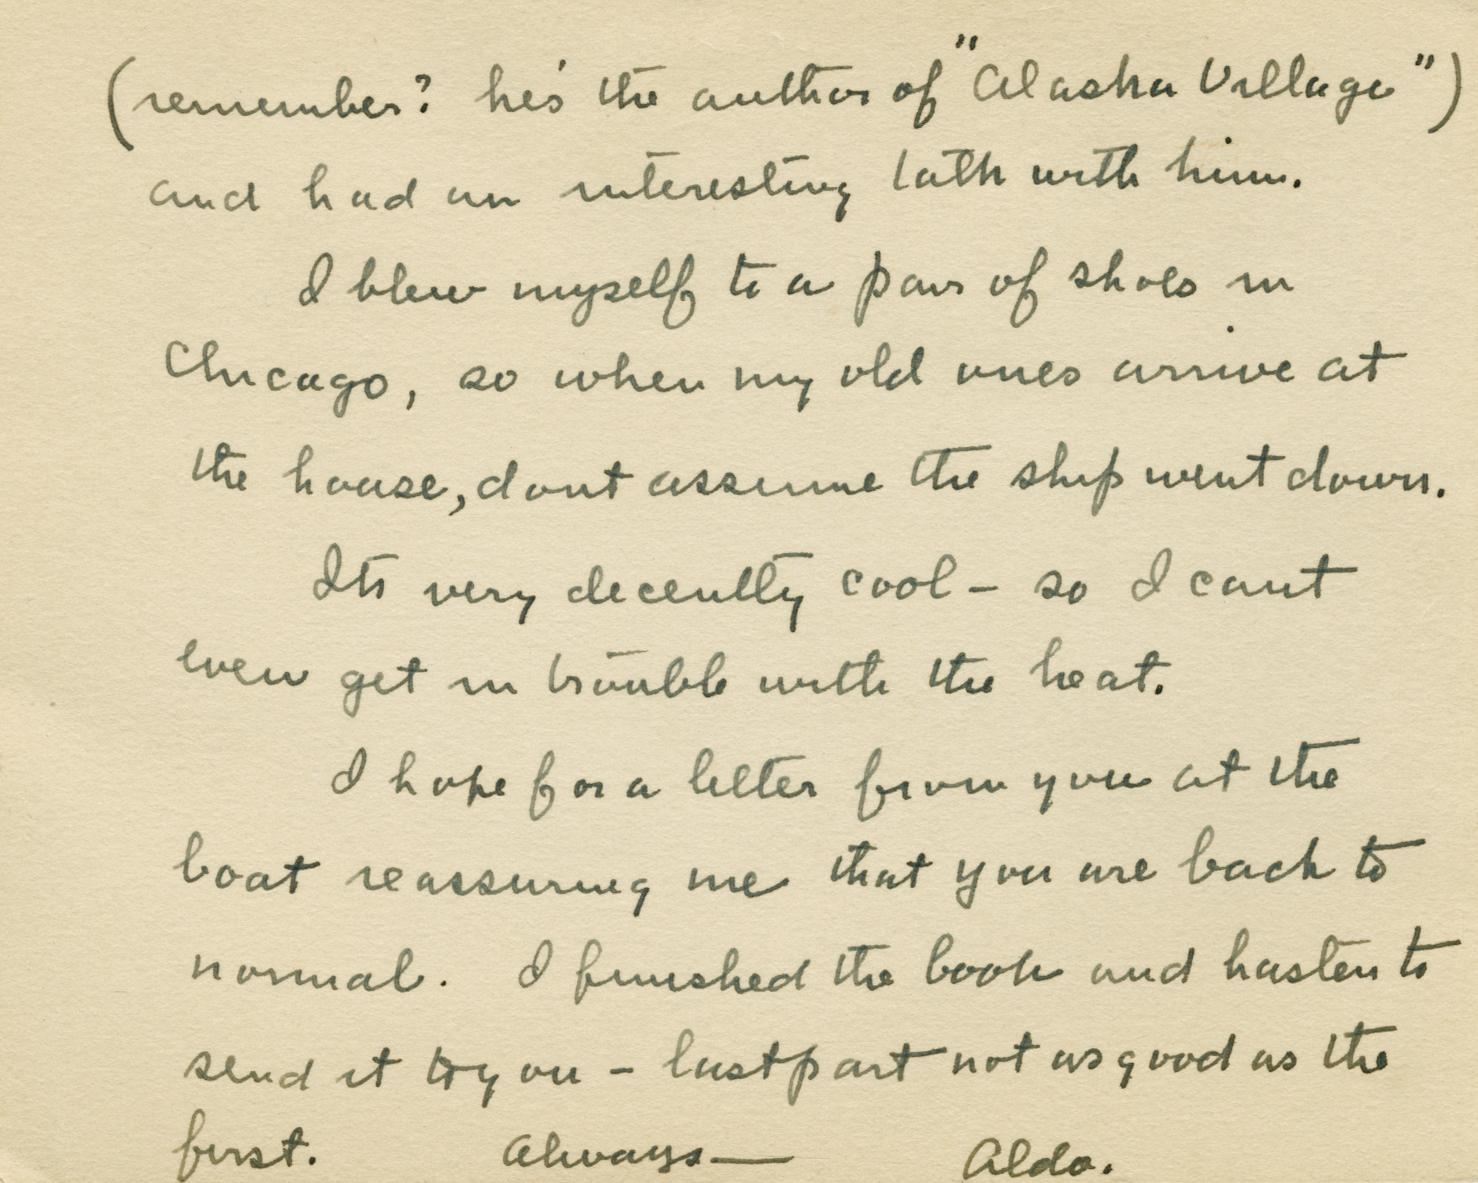 (remember? he's the author of "Alaska Village")
and had an interesting talk with him.
I blew myself to a pair of shoes in
Chicago, so when my old ones arrive at
the house, dont assume the ship went down.
Its very decently cool – so I cant
even get in trouble with the heat.
I hope for a letter from you at the
boat reassuring me that you are back to
normal. I finished the book and hasten to
send it to you – last part not as good as the
first. Always— Aldo.